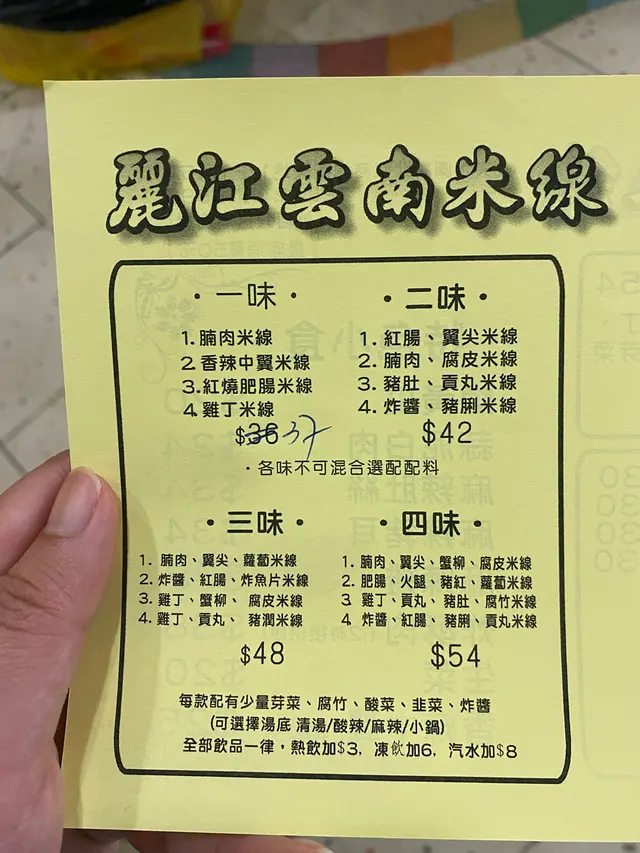 麗江雲南米線
·一味·
1.腩肉米線
2.香辣中翼米線
3.紅燒肥腸米線
4.雞丁米線
$36 37
·二味·
1.紅腸、翼尖米線
2.腩肉、腐皮米線
3.豬肚、貢丸米線
4.炸醬、豬脷米線
$42
·各味不可混合選配配料
·三味·
1.腩肉、翼尖、蘿蔔米線
2.炸醬、紅腸、炸魚片米線
3.雞丁、蟹柳、腐皮米線
4.雞丁、貢丸、豬潤米線
$48
·四味·
1.腩肉、翼尖、蟹柳、腐皮米線
2.肥腸、火腿、豬紅、蘿蔔米線
3.雞丁、貢丸、豬肚、腐竹米線
4.炸醬、紅腸、豬脷、貢丸米線
$54
每款配有少量芽菜、腐竹、酸菜、韭菜、炸醬
(可選擇湯底 清湯/酸辣/麻辣/小鍋)
全部飲品一律，熱飲加$3，凍飲加6，汽水加$8